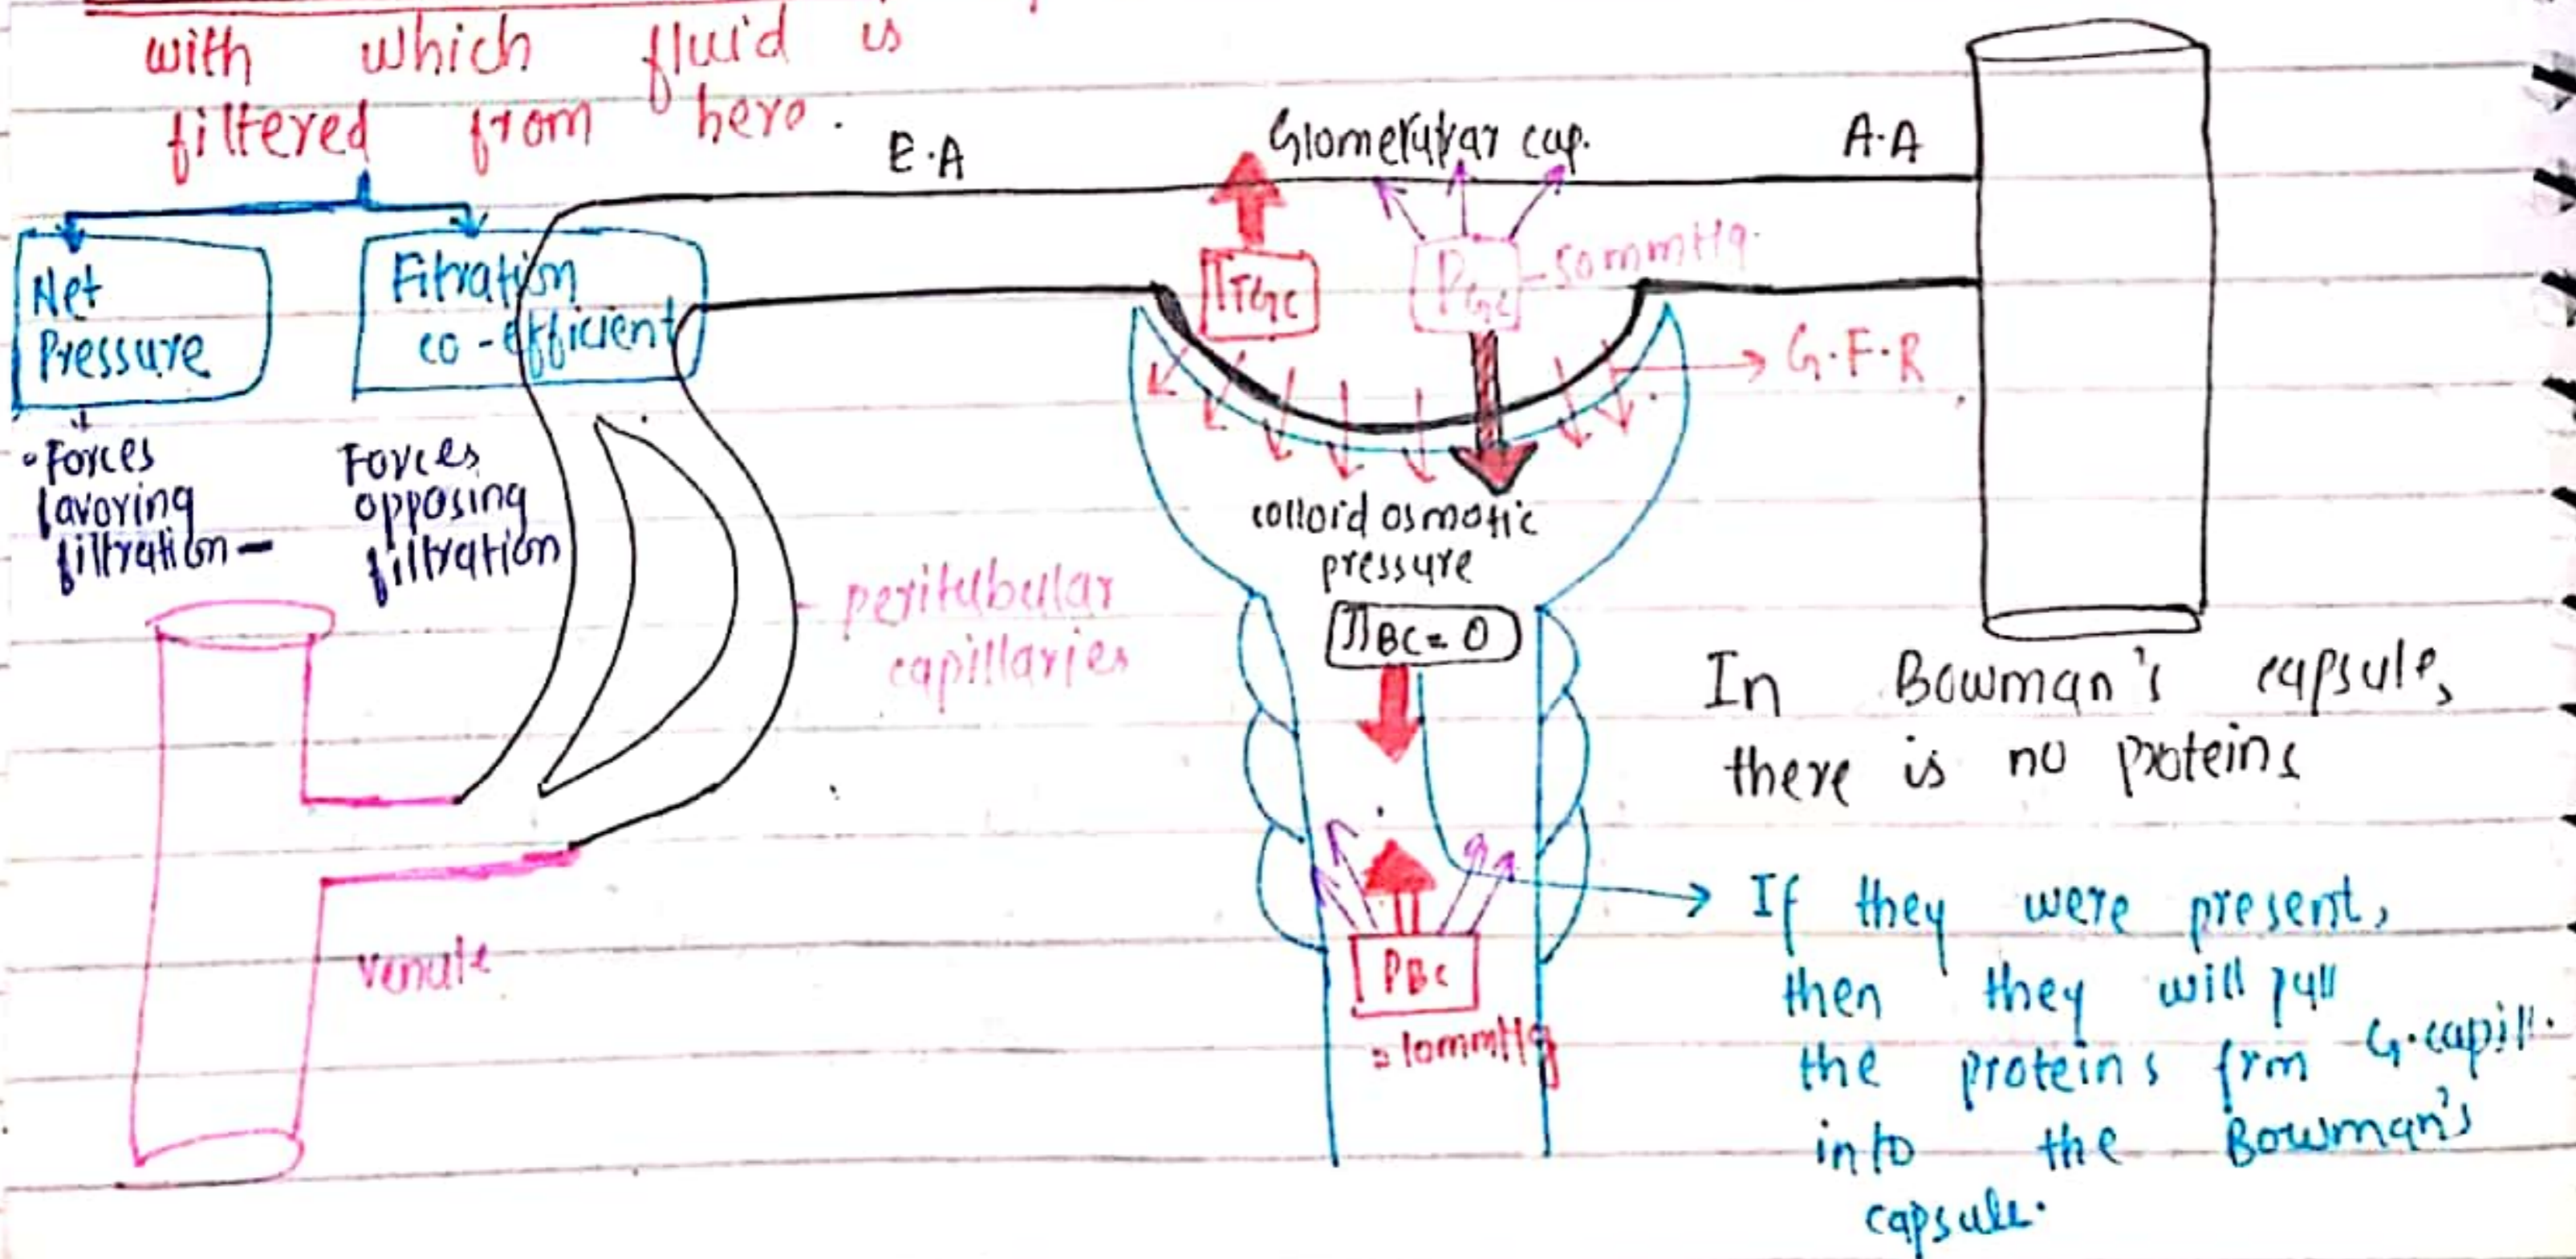 with which fluid is
filtered from here.
E.A
Glomerular cap.
A.A
Net
Pressure
Fitration
co-efficient
πGC
PGC - 50mmHg.
G.F.R
• Forces
favoring
filtration -
Forces
opposing
filtration
colloid osmotic
pressure
πBC = 0
peritubular
capillaries
In Bowman's capsule,
there is no proteins
venule
PBC
= 10mmHg
If they were present,
then they will pull
the proteins frm G.capill.
into the Bowman's
capsule.